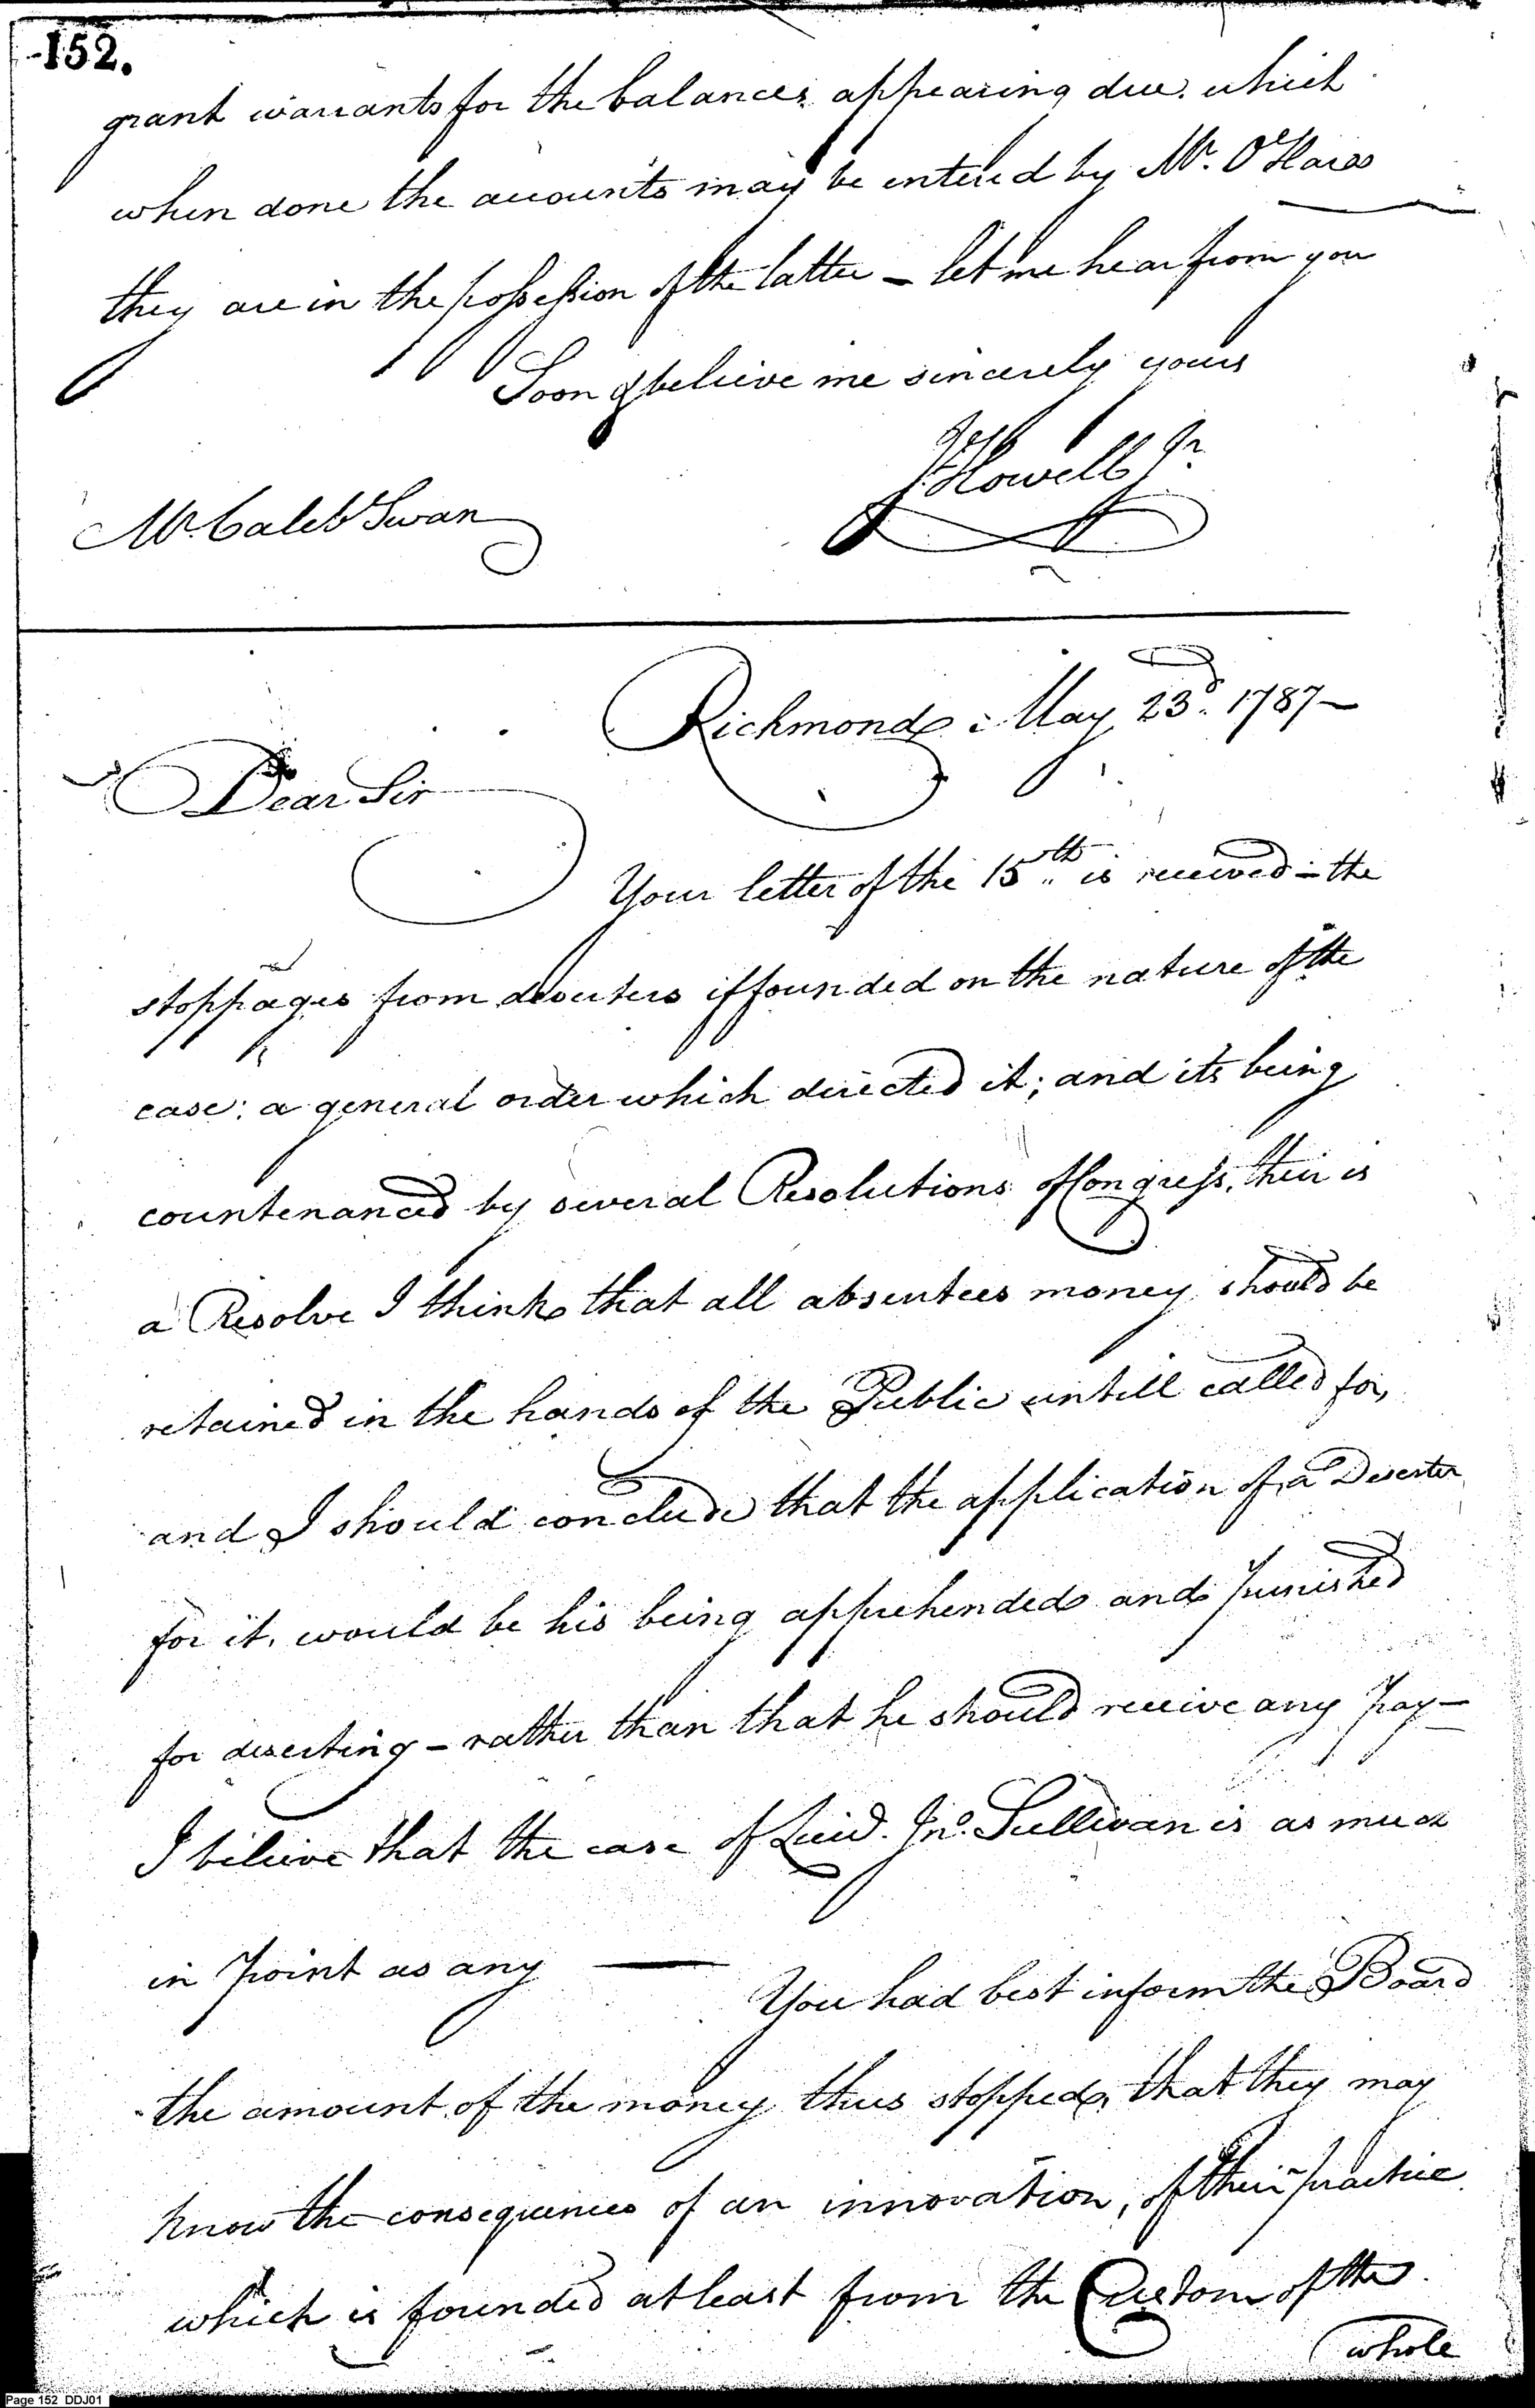 152.
grant warrants for the balances appearing due. which
when done the accounts may be entered by Mr. O'Hara
they are in the possession of the latter – let me hear from you
Soon & believe me sincerely yours
Jos Howell Jr.
Mr. Caleb Swan
Richmond May 23d. 1787 –
Dear Sir
Your letter of the 15th is received – the
stoppages from deserters if founded on the nature of the
case: a general order which directed it; and its being
countenanced by several Resolutions of Congress, their is
a Resolve I think that all absentees money should be
retained in the hands of the Public untill called for,
and I should conclude that the application of a Deserter
for it, would be his being apprehended and punished
for deserting – rather than that he should receive any Pay –
I believe that the case of Jno. Sullivan is as much
in Point as any — You had best inform the Board
the amount of the money thus stopped, that they may
know the consequences of an innovation, of their practice
which is founded at least from the Custom of the
whole
Page 152 DDJ01